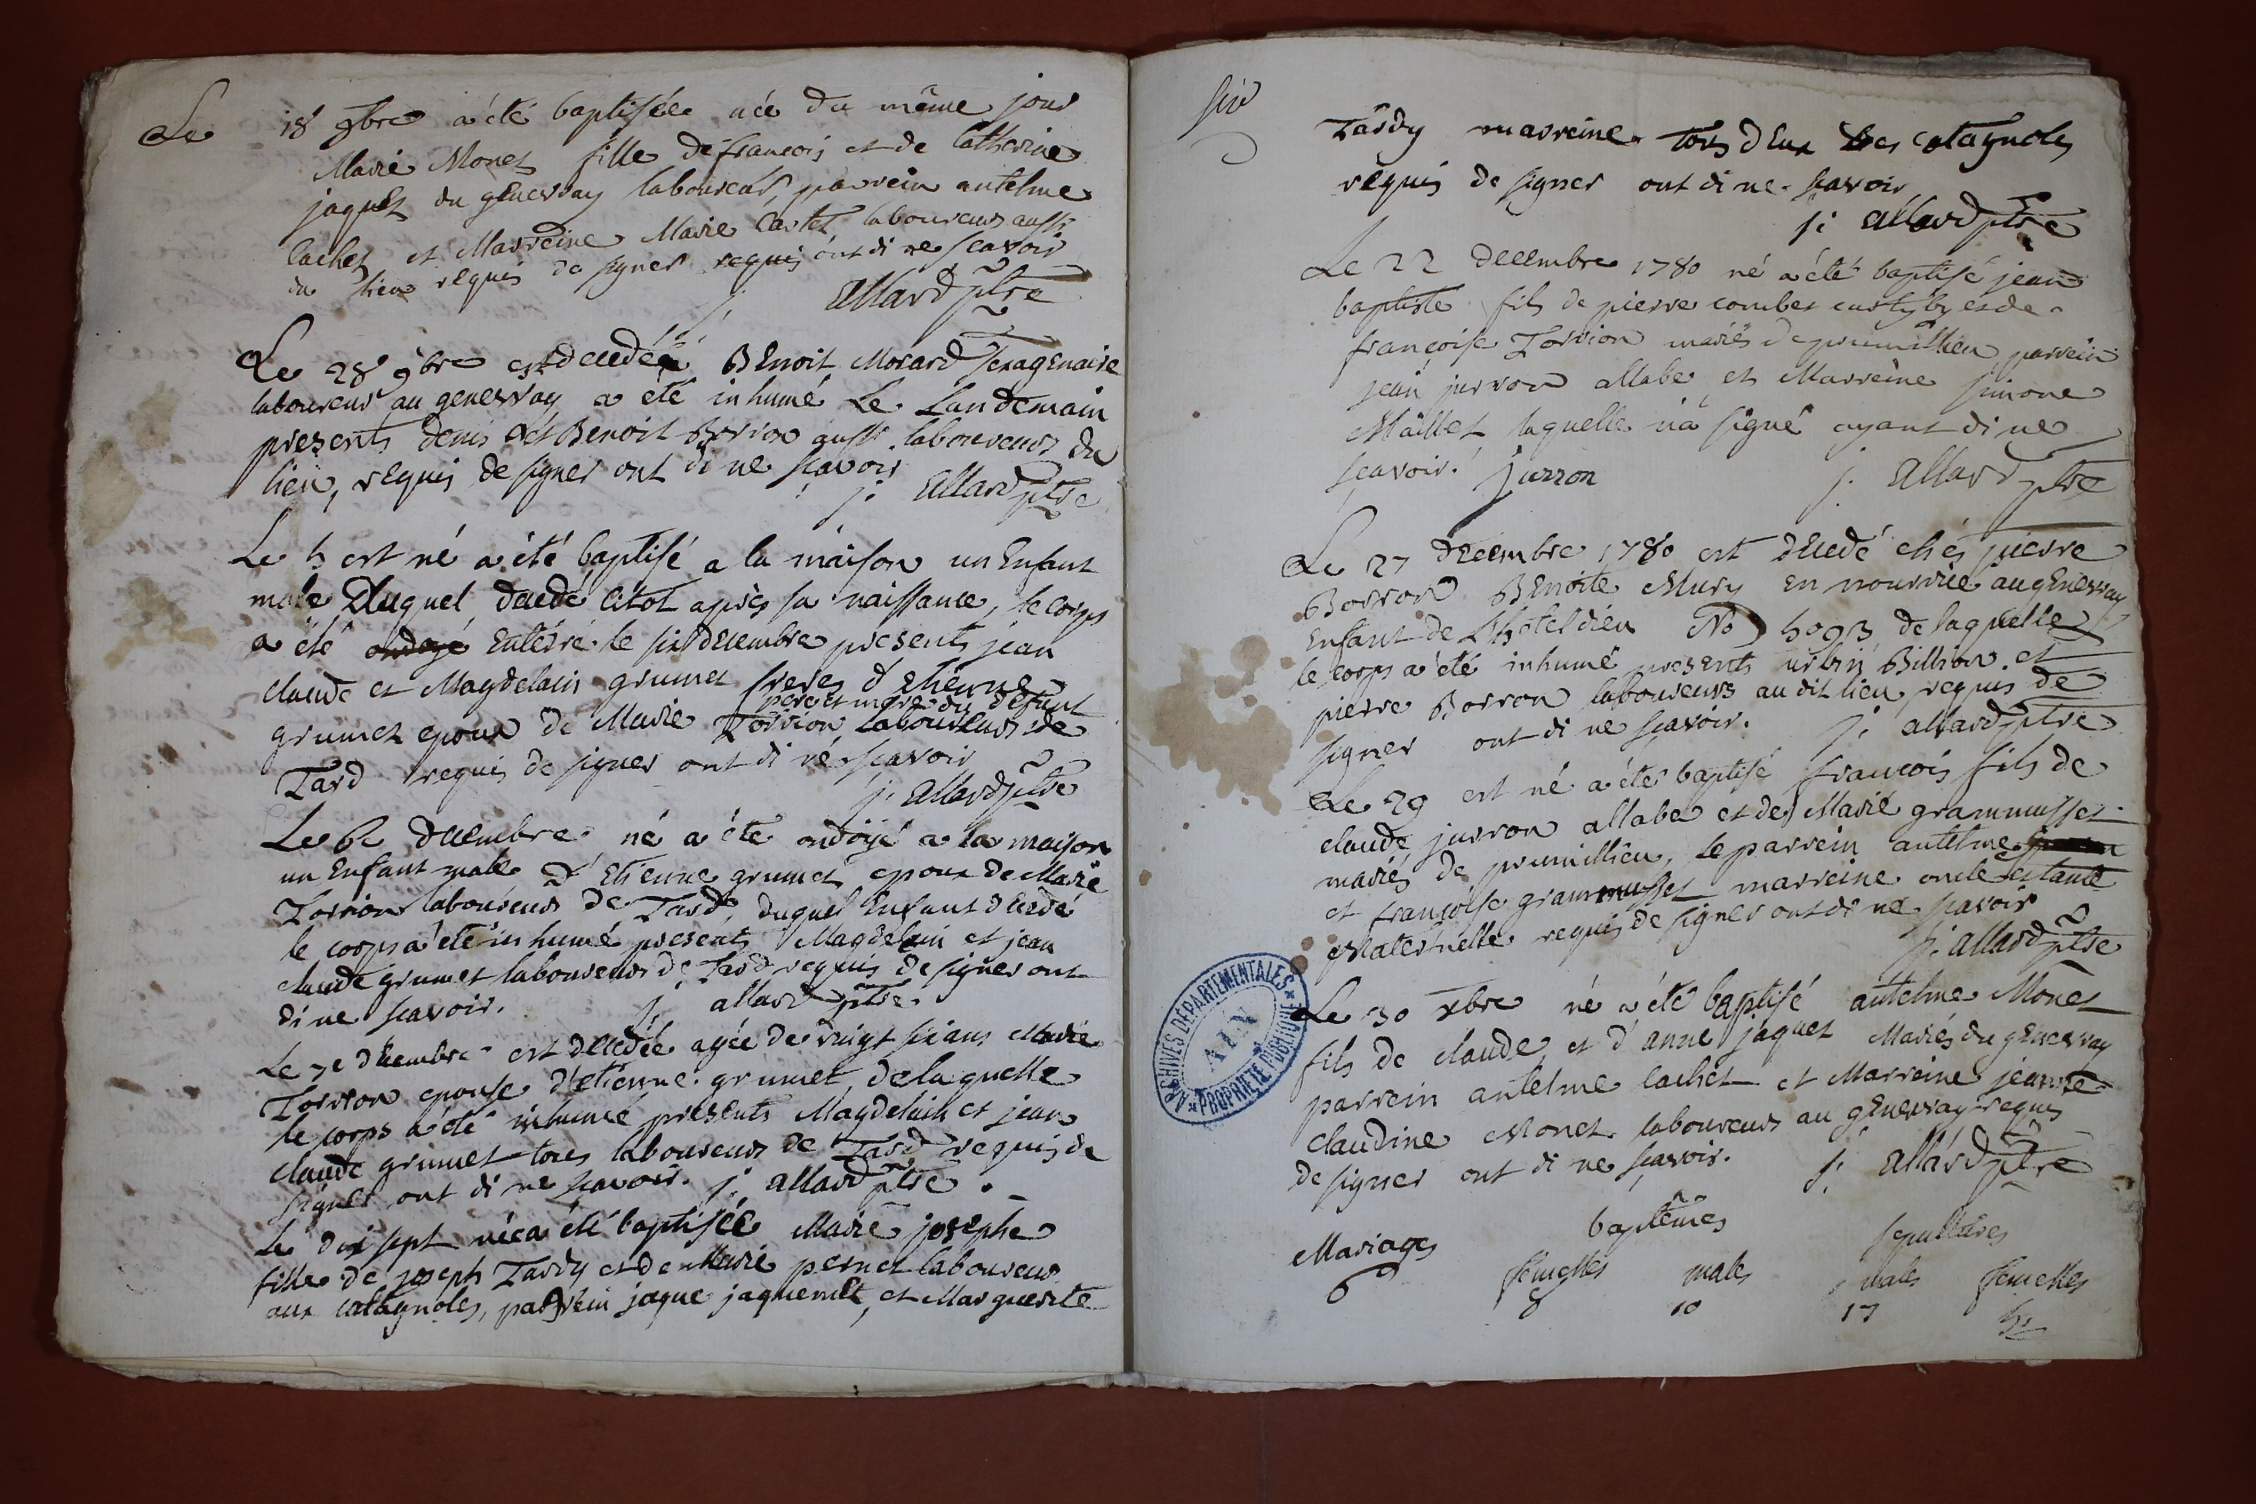 Le 18 9bre a été baptisée née du même jour
Marie Monet fille de francois et de Catherine
jaquet du genevray laboureur, parrein antelme
Cachet et Marreine Marie Cartet laboureurs aussi
du lieu requis de signer requis ont di ne scavoir
j. allard ptre
Le 28 9bre est decedé Benoit Morard sexagenaire
laboureur au genevray a été inhumé Le Landemain
presents denis et Benoit Borron aussi laboureurs du
lieu, requis de signer ont di ne scavoir
j. allard ptre
Le 5 est né a été baptisé a la maison un Enfant
male Duquel decedé Citot après sa naissance, le corps
a été ondoyé Entérré le six decembre presents jean
claude et Magdelain grumet freres d'Etienne
père et mere du défunt
grumet epoux de Marie Torrion Laboureurs de
Tard requis de signer ont di né scavoir
j. allard ptre
Le 6e decembre né a été ondoyé a la maison
un Enfant male d'Etienne grumet epoux de Marie
Torrion laboureurs de Tard, duquel Enfant decedé
le corps a été inhumé presents Magdelain et jean
claude grumet laboureurs de Tard requis de signer ont
di ne scavoir. j. allard ptre.
Le 7e decembre est decedée agée de vingt six ans Marie
Torrion epouse d'etienne grumet, de laquelle
le corps a été inhumé presents Magdelain et jean
claude grumet tous laboureurs de Tard requis de
signer ont di ne scavoir. j. allard ptre.
Le dix sept née a été baptisée Marie josephe
fille de joseph Tardy et de Marie pernet laboureurs
aux catagnoles, parrein jaque jaquemet, et Marguerite
six
Tardy marreine tous deux des catagnoles
requis de signer ont di ne scavoir
j. allard ptre
Le 22 decembre 1780 né a été baptisé jean
baptiste fils de pierre combet et de
françoise Torrion mariés de premillieu parrein
jean jurron allabe, et Marreine simone
Maillet laquelle n'a signé ayant di ne
scavoir. Jurron j. allard ptre
Le 27 decembre 1780 est decedé chés pierre
Borron Benoite Mury en nourrice au genevray
enfant de L'hotel dieu No 5093 de laquelle
le corps a été inhumé presents urbin Billion et
pierre Borron laboureurs au dit lieu requis de
signer ont di ne scavoir. j. allard ptre
Le 29 est né a été baptisé francois fils de
claude jurron allabe et de Marie grammusset
mariés de premillieu, le parrein antelme
et françoise grammusset marreine oncle et tante
Maternelle requis de signer ont di ne scavoir
j. allard ptre
Le 30 xbre né a été baptisé antelme Monet
fils de claude, et d'anne jaquet Mariés du genevray
parrein antelme Cachet et Marreine jeanne
Claudine Monet laboureurs au genevray requis
de signer ont di ne scavoir. j. allard ptre
Mariages baptêmes sepultures
femelles males males femelles
6 8 10 17
ARCHIVES DÉPARTEMENTALES
AIN
PROPRIÉTÉ PUBLIQUE